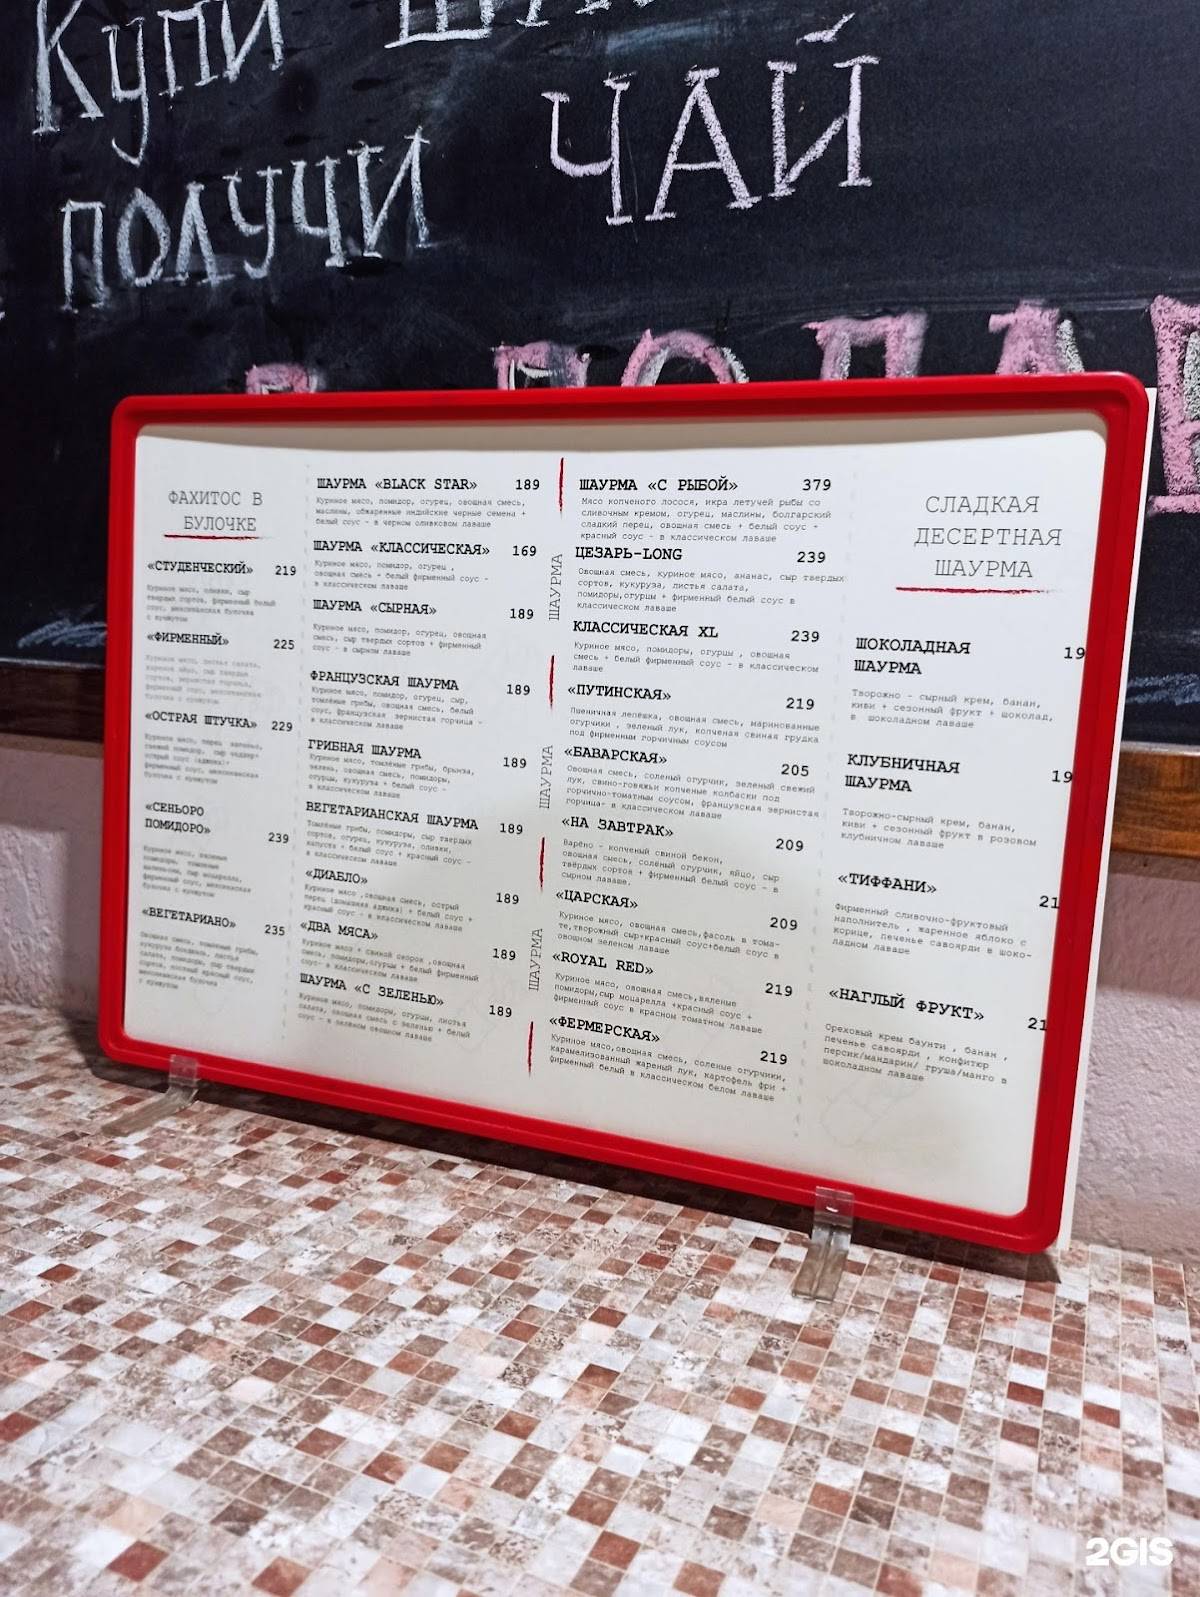 Купи
ПОЛУЧИ ЧАЙ
ФАХИТОС В
БУЛОЧКЕ
«СТУДЕНЧЕСКИЙ» 219
Куриное мясо, оливки, сыр
твердых сортов, фирменный белый
соус, мексиканская булочка
с кунжутом
«ФИРМЕННЫЙ» 225
«ОСТРАЯ ШТУЧКА» 229
«СЕНЬОРО
ПОМИДОРО» 239
«ВЕГЕТАРИАНО» 235
ШАУРМА «BLACK STAR» 189
Куриное мясо, помидор, огурец, овощная смесь,
маслины, обжаренные индийские черные семена +
белый соус - в черном оливковом лаваше
ШАУРМА «КЛАССИЧЕСКАЯ» 169
Куриное мясо, помидор, огурец ,
овощная смесь + белый фирменный соус -
в классическом лаваше
ШАУРМА «СЫРНАЯ» 189
Куриное мясо, помидор, огурец, овощная
смесь, сыр твердых сортов + фирменный
соус - в сырном лаваше
ФРАНЦУЗСКАЯ ШАУРМА 189
Куриное мясо, помидор, огурец, сыр,
томлёные грибы, овощная смесь, белый
соус, французская зернистая горчица -
в классическом лаваше
ГРИБНАЯ ШАУРМА 189
Куриное мясо, томлёные грибы, брынза,
зелень, овощная смесь, помидоры,
огурцы, кукуруза + белый соус -
в классическом лаваше
ВЕГЕТАРИАНСКАЯ ШАУРМА 189
Томлёные грибы, помидоры, сыр твердых
сортов, огурец, кукуруза, оливки,
капуста + белый соус + красный соус -
в классическом лаваше
«ДИАБЛО» 189
Куриное мясо ,овощная смесь, острый
перец (домашняя аджика) + белый соус +
красный соус - в классическом лаваше
«ДВА МЯСА» 189
Куриное мясо + свиной окорок ,овощная
смесь, помидоры,огурцы + белый фирменный
соус- в классическом лаваше
ШАУРМА «С ЗЕЛЕНЬЮ» 189
Куриное мясо, помидоры, огурцы, листья
салата, овощная смесь с зеленью + белый
соус - в зелёном овощном лаваше
ШАУРМА
ШАУРМА
ШАУРМА
ШАУРМА «С РЫБОЙ» 379
Мясо копченого лосося, икра летучей рыбы со
сливочным кремом, огурец, маслины, болгарский
сладкий перец, овощная смесь + белый соус +
красный соус - в классическом лаваше
ЦЕЗАРЬ-LONG 239
Овощная смесь, куриное мясо, ананас, сыр твердых
сортов, кукуруза, листья салата,
помидоры,огурцы + фирменный белый соус в
классическом лаваше
КЛАССИЧЕСКАЯ XL 239
Куриное мясо, помидоры, огурцы , овощная
смесь + белый фирменный соус - в классическом
лаваше
«ПУТИНСКАЯ» 219
Пшеничная лепешка, овощная смесь, маринованные
огурчики , зеленый лук, копченая свиная грудка
под фирменным горчичным соусом
«БАВАРСКАЯ» 205
Овощная смесь, соленый огурчик, зеленый свежий
лук, свино-говяжьи копченые колбаски под
горчично-томатным соусом, французская зернистая
горчица- в классическом лаваше
«НА ЗАВТРАК» 209
Варёно - копченый свиной бекон,
овощная смесь, солёный огурчик, яйцо, сыр
твёрдых сортов + фирменный белый соус - в
сырном лаваше.
«ЦАРСКАЯ» 209
Куриное мясо, овощная смесь,фасоль в тома-
те,творожный сыр+красный соус+белый соус в
овощном зеленом лаваше
«ROYAL RED» 219
Куриное мясо, овощная смесь,вяленые
помидоры,сыр моцарелла +красный соус +
фирменный соус в красном томатном лаваше
«ФЕРМЕРСКАЯ» 219
Куриное мясо,овощная смесь, соленые огурчики,
карамелизованный жареный лук, картофель фри +
фирменный белый в классическом белом лаваше
СЛАДКАЯ
ДЕСЕРТНАЯ
ШАУРМА
ШОКОЛАДНАЯ 19
ШАУРМА
Творожно - сырный крем, банан,
киви + сезонный фрукт + шоколад,
в шоколадном лаваше
КЛУБНИЧНАЯ 19
ШАУРМА
Творожно-сырный крем, банан,
киви + сезонный фрукт в розовом
клубничном лаваше
«ТИФФАНИ» 21
Фирменный сливочно-фруктовый
наполнитель , жаренное яблоко с
корице, печенье савоярди в шоко-
ладном лаваше
«НАГЛЫЙ ФРУКТ» 21
Ореховый крем баунти , банан ,
печенье савоярди , конфитюр
персик/мандарин/ груша/манго в
шоколадном лаваше
2GIS